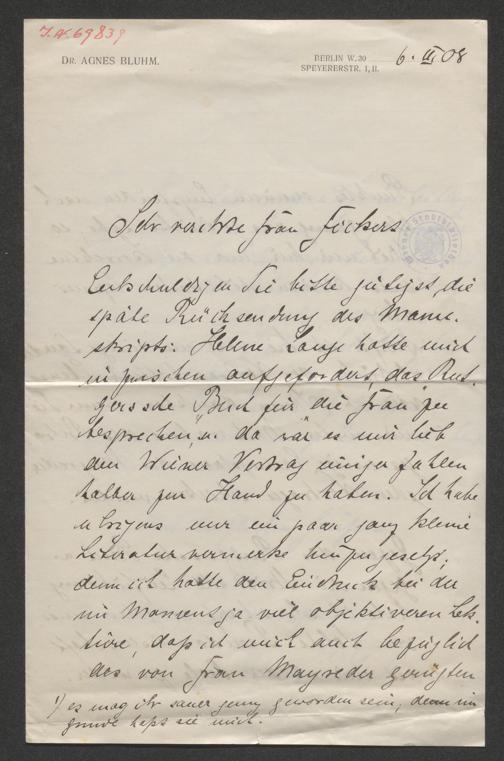 I.N.69839
DR. AGNES BLUHM.
BERLIN W. 30
SPEYERERSTR. 1, II.
6. III. 08
Sehr verehrte Frau Fickert
Entschuldigen Sie bitte gütigst die
späte Rücksendung des Manu-
skripts. Helene Lange hatte mich
inzwischen aufgefordert, das Rut-
gerssche "Buch für die Frau" zu
besprechen, u. da war es mir lieb
den Wiener Vortrag einiger Zahlen
halber zur Hand zu haben. Ich habe
übrigens nur ein paar ganz kleine
Literaturvermerke hinzugesetzt,
denn ich hatte den Eindruck bei der
im Moment ja viel objektiveren Lek-
türe, daß ich mich auch bezüglich
des von Frau Mayreder gerügten
1) es mag ihr sauer genug geworden sein, denn im
Grunde haßt sie mich.